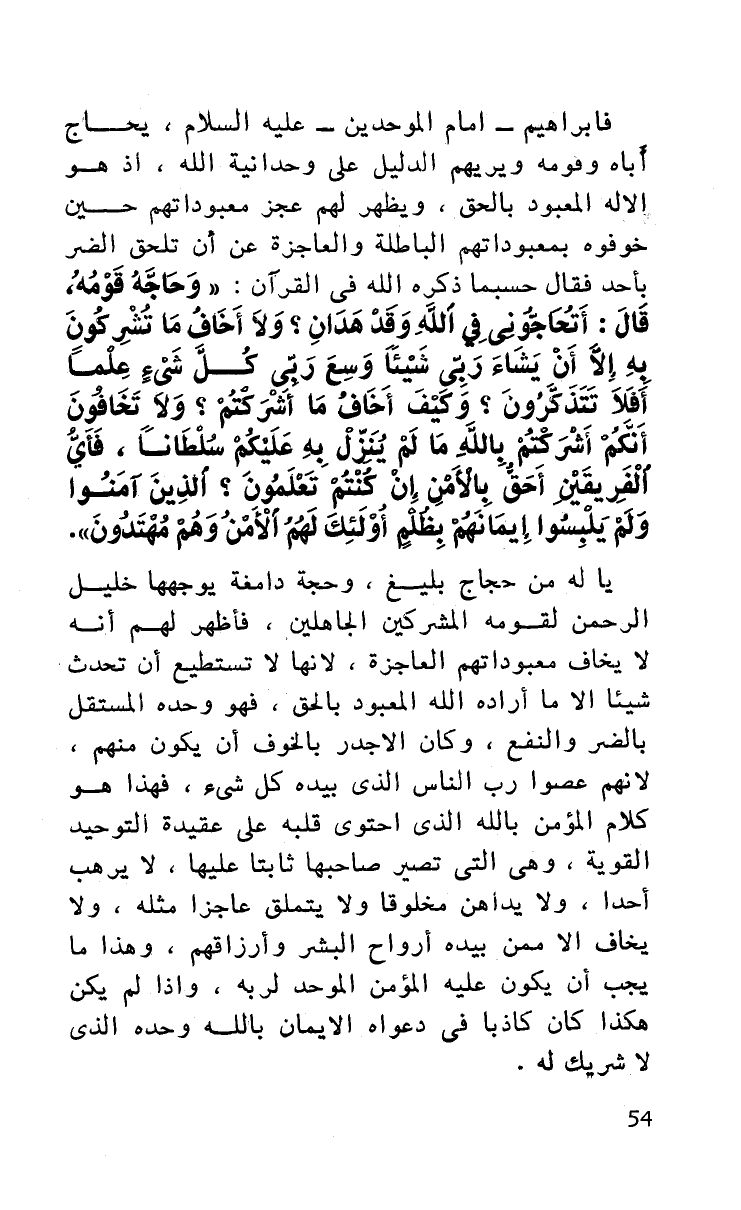 فابراهيم – امام الموحدين – عليه السلام ، يحـــاج
أباه وقومه ويريهم الدليل على وحدانية الله ، اذ هــو
إلاله المعبود بالحق ، ويظهر لهم عجز معبوداتهم حـــين
خوفوه بمعبوداتهم الباطلة والعاجزة عن أن تلحق الضر
بأحد فقال حسبما ذكره الله فى القرآن : « وَحَاجَّهُ قَوْمُهُ،
قَالَ : أَتُحَاجُّونِي فِي ٱللَّهِ وَقَدْ هَدَانِ ؟ وَلاَ أَخَافُ مَا تُشْرِكُونَ
بِهِ إِلاَّ أَنْ يَشَاءَ رَبِّي شَيْئًا وَسِعَ رَبِّي كُـــلَّ شَيْءٍ عِلْمـاً
أَفَلاَ تَتَذَكَّرُونَ ؟ وَكَيْفَ أَخَافُ مَا أَشْرَكْتُمْ ؟ وَلاَ تَخَافُونَ
أَنَّكُمْ أَشْرَكْتُمْ بِاللَّهِ مَا لَمْ يُنَزِّلْ بِهِ عَلَيْكُمْ سُلْطَانـاً ، فَأَيُّ
ٱلْفَرِيقَيْنِ أَحَقُّ بِالْأَمْنِ إِنْ كُنْتُمْ تَعْلَمُونَ ؟ ٱلَّذِينَ آمَنُـوا
وَلَمْ يَلْبِسُوا إِيمَانَهُمْ بِظُلْمٍ أُوْلَئِكَ لَهُمُ ٱلْأَمْنُ وَهُمْ مُهْتَدُونَ».
يا له من حجاج بليـــغ ، وحجة دامغة يوجهها خليـــل
الرحمن لقـــومه المشركين الجاهلين ، فأظهر لهـــم أنـــه
لا يخاف معبوداتهم العاجزة ، لانها لا تستطيع أن تحدث
شيئا الا ما أراده الله المعبود بالحق ، فهو وحده المستقل
بالضر والنفع ، وكان الاجدر بالخوف أن يكون منهم ،
لانهم عصوا رب الناس الذى بيده كل شىء ، فهذا هــو
كلام المؤمن بالله الذى احتوى قلبه على عقيدة التوحيد
القوية ، وهى التى تصير صاحبها ثابتا عليها ، لا يرهب
أحدا ، ولا يداهن مخلوقا ولا يتملق عاجزا مثله ، ولا
يخاف الا ممن بيده أرواح البشر وأرزاقهم ، وهذا ما
يجب أن يكون عليه المؤمن الموحد لربه ، واذا لم يكن
هكذا كان كاذبا فى دعواه الايمان باللـــه وحده الذى
لا شريك له .
54